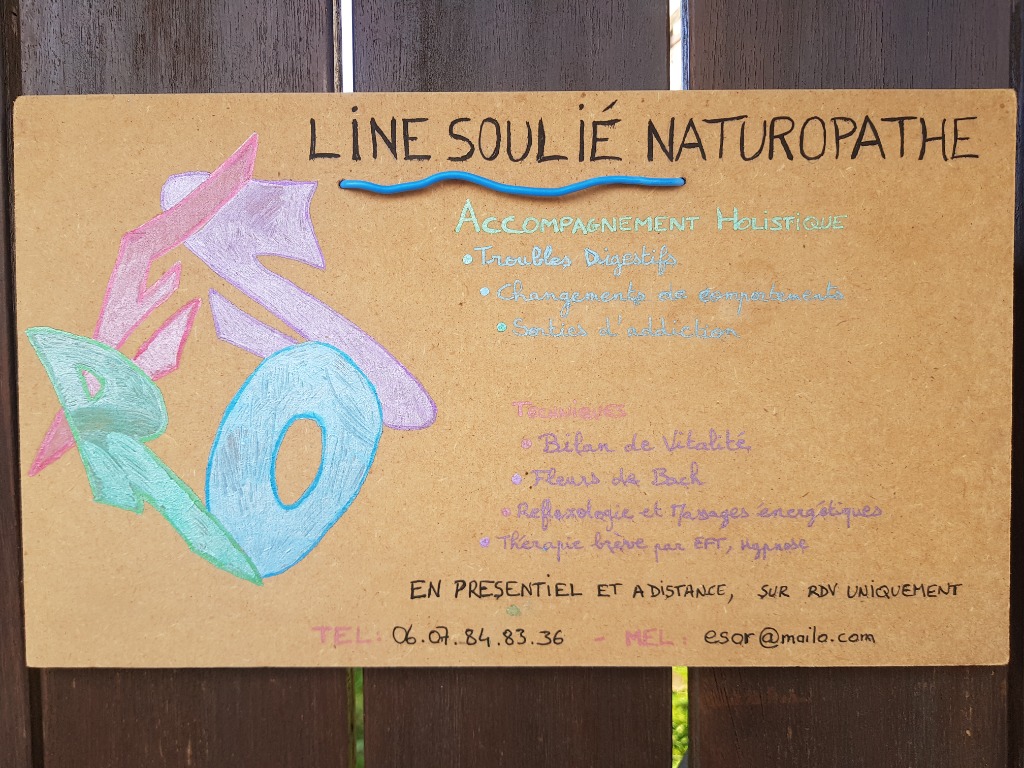 LINE SOULIÉ NATUROPATHE
ACCOMPAGNEMENT HOLISTIQUE
• Troubles Digestifs
• Changements de comportements
• Sorties d'addiction
TECHNIQUES
• Bilan de Vitalité
• Fleurs de Bach
• Reflexologie et Massages énergétiques
• Thérapie brève par EFT, Hypnose
EN PRESENTIEL ET A DISTANCE, SUR RDV UNIQUEMENT
TEL: 06.07.84.83.36 - MEL: esor@mailo.com